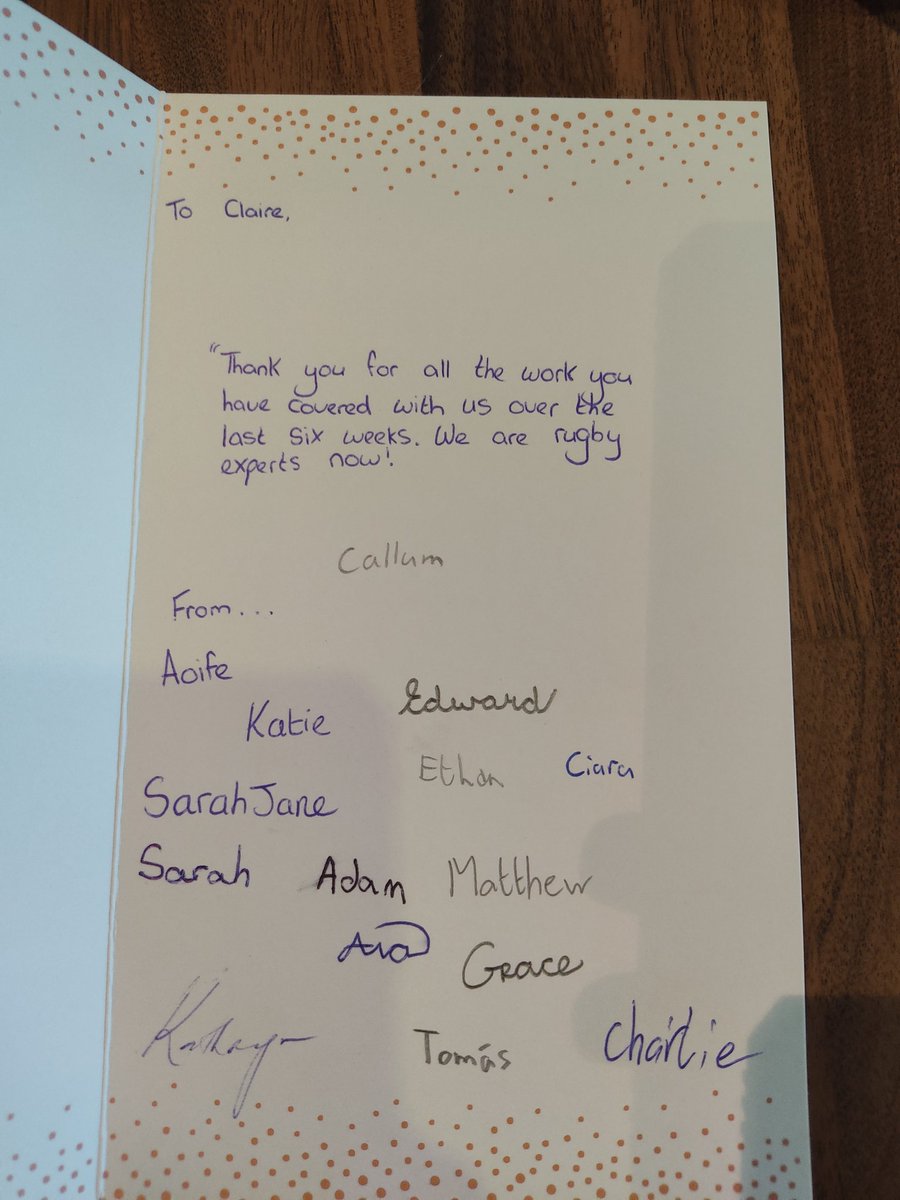 To Claire,
"Thank you for all the work you
have covered with us over the
last six weeks. We are rugby
experts now!
Callum
From...
Aoife
Edward
Katie
Ethan Ciara
SarahJane
Sarah Adam Matthew
Ava
Grace
Tomás Charlie